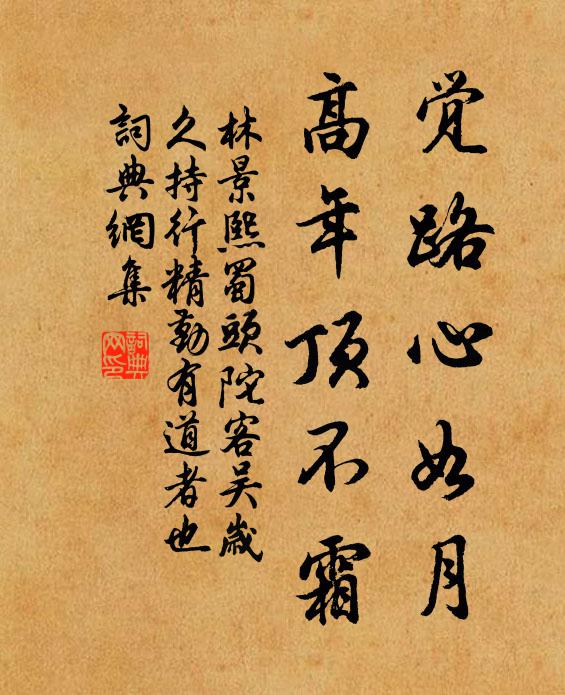 觉路心如月
高年顶不霜
林景熙蜀頭陀客吴歲
久持行精勤有道者也
詞典網集
詞典
网印